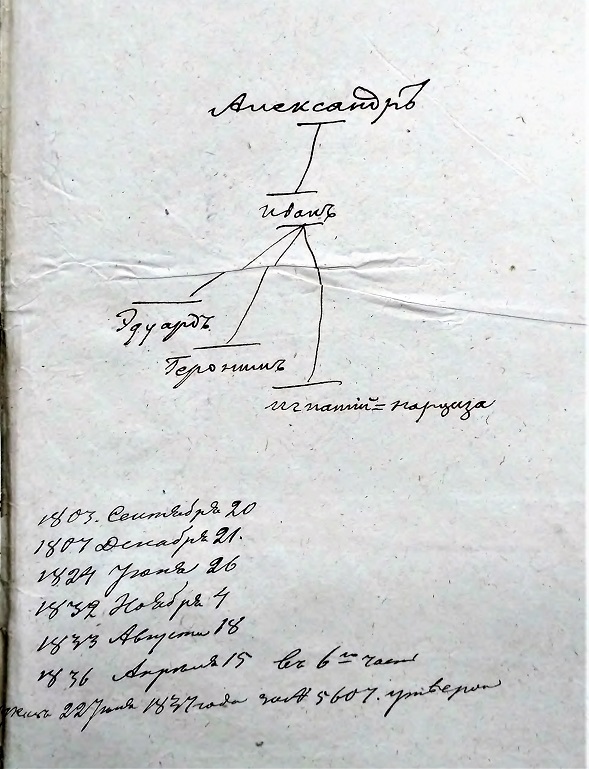 Александръ
Иванъ
Эдуардъ
Геронимъ
Игнатій=Нарциза
1803. Сентября 20
1807 Декабря 21.
1824 Іюня 26
1832 Ноября 4
1833 Августа 18
1836 Апреля 15 въ 6ю част
22 1837 года за № 5607. утвержд